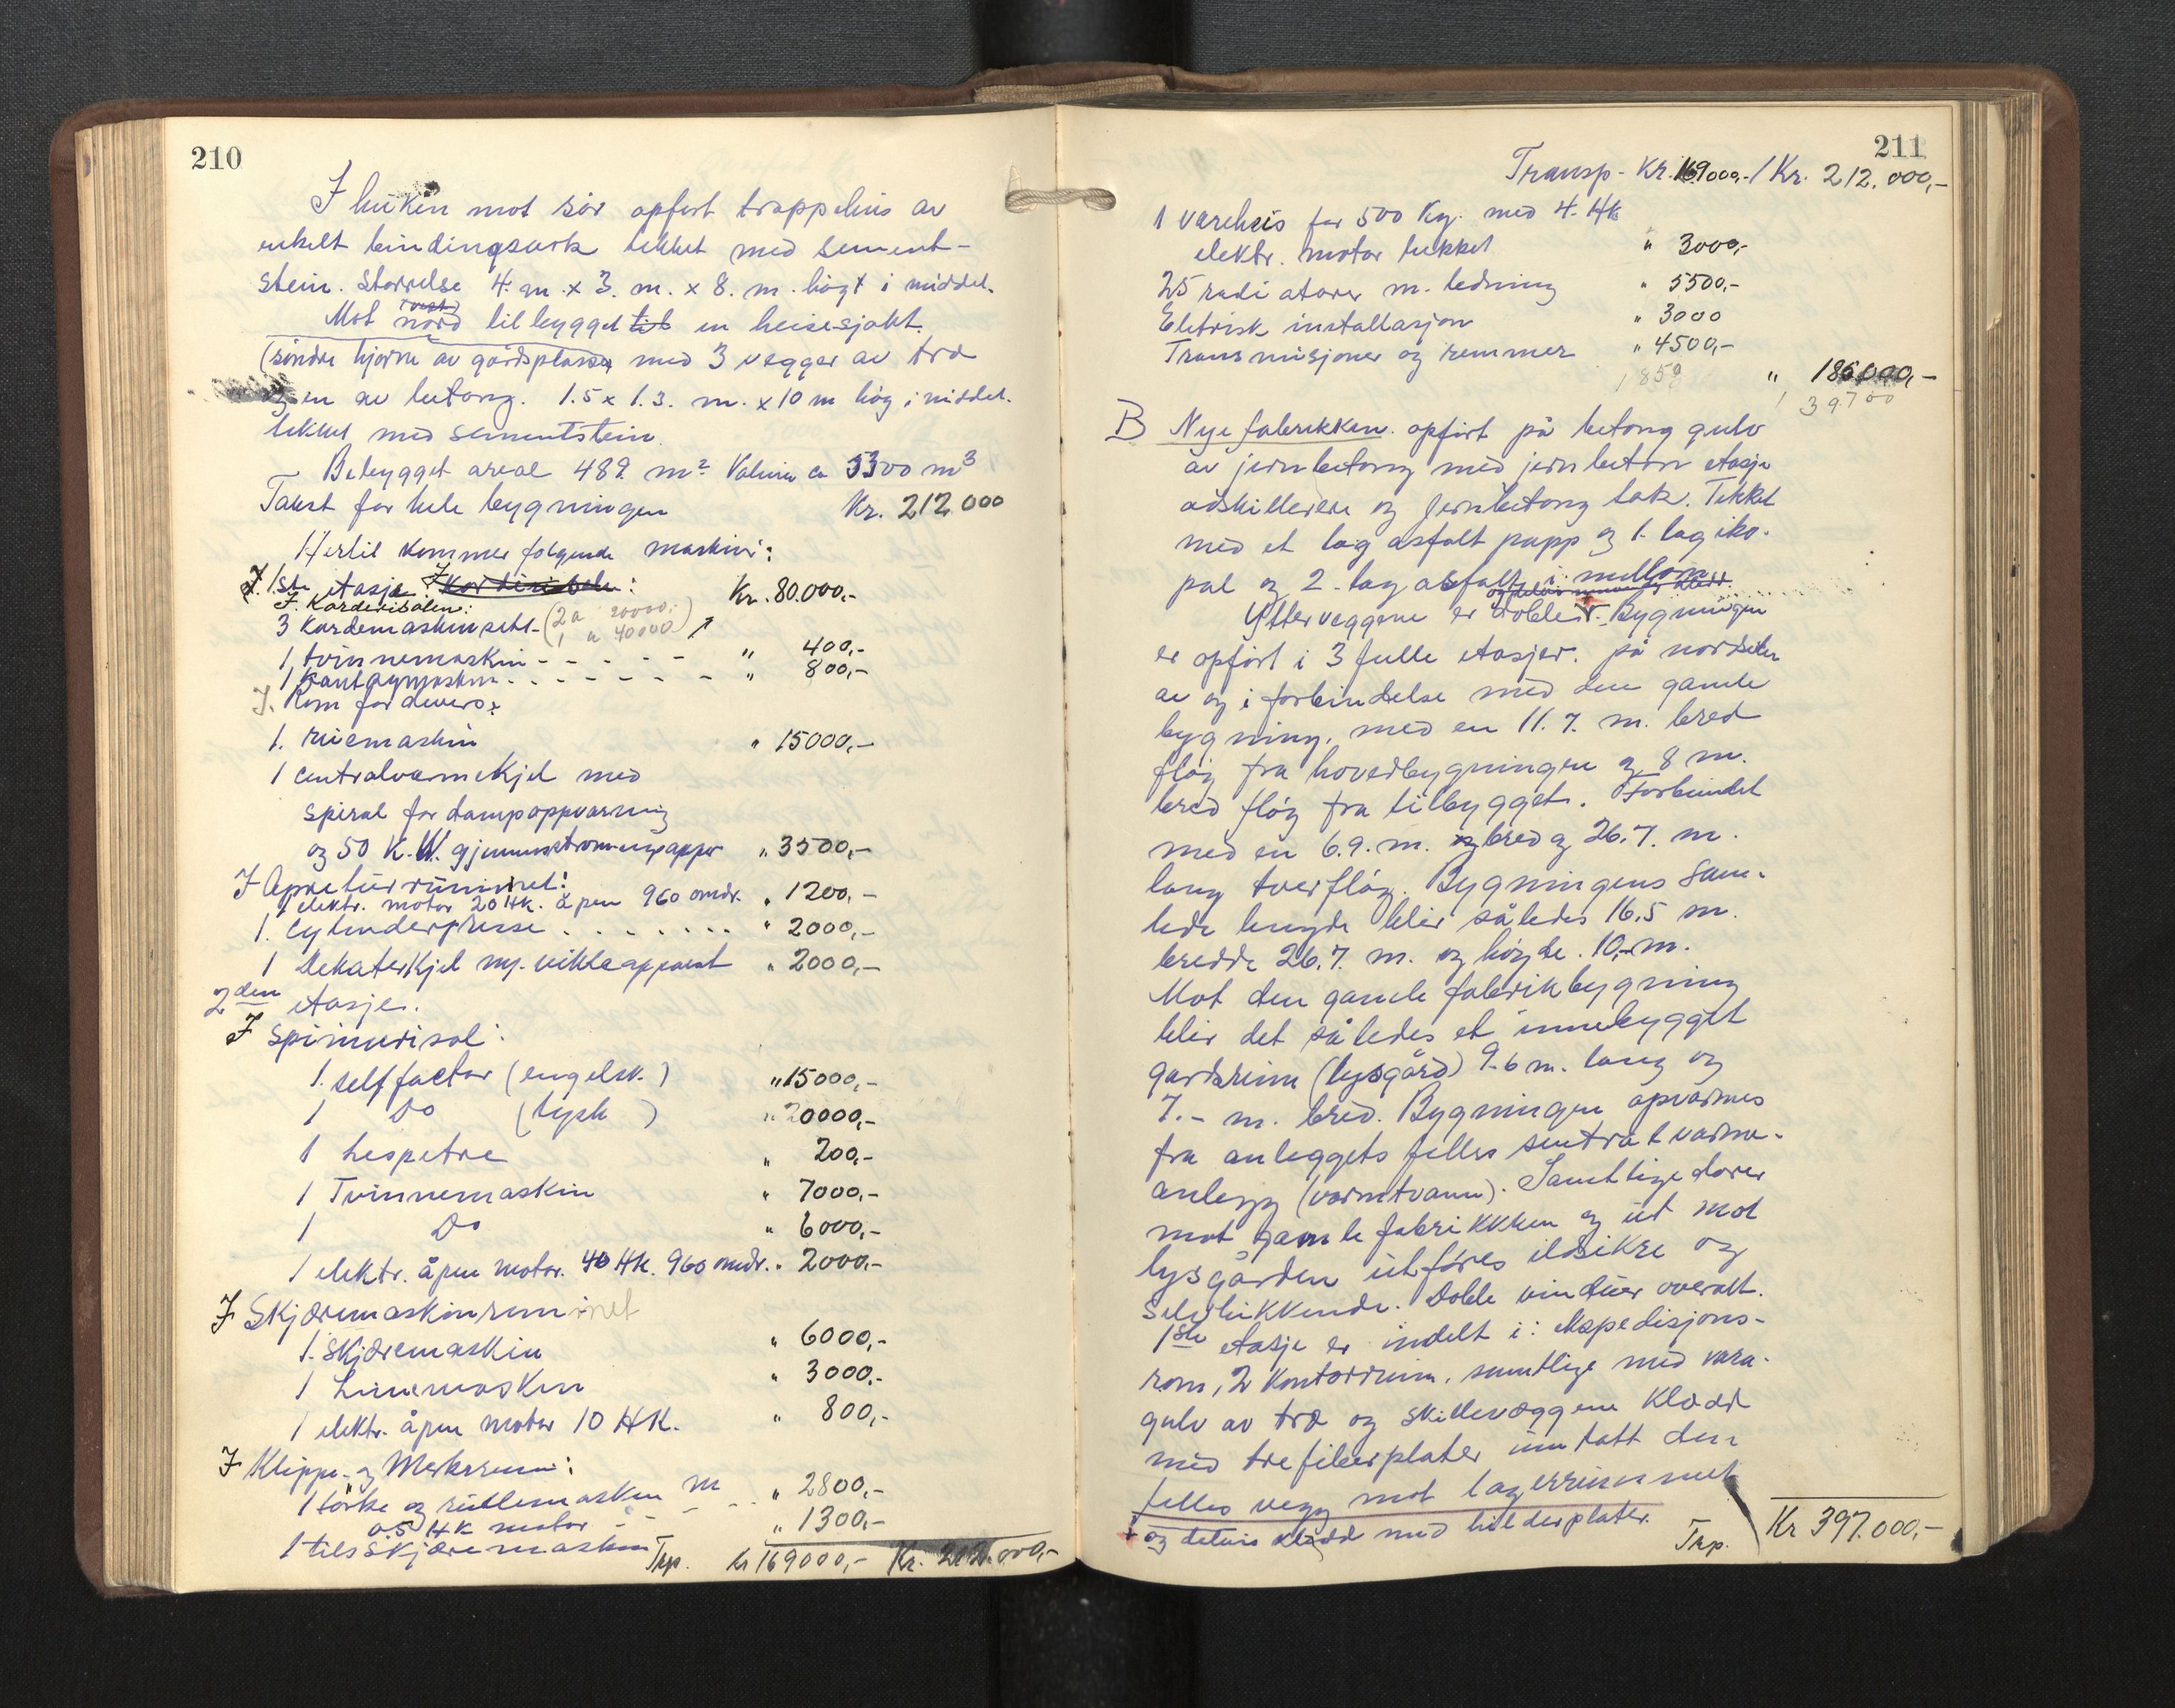 210
I huken mot sør opført trappehus av
enkelt bindingsverk tekket med sement-
stein. Størrelse 4. m. x 3. m. x 8. m. høgt i middel.
Mot nord tilbygget til en heisesjakt.
(søndre hjørne av gårdsplassen med 3 vegger av tre
og en av betong. 1.5 x 1.3. m. x 10 m høg i middel.
tekket med sementstein.
Bebygget areal 489 m² Volum ca 5300 m³
Takst for hele bygningen Kr. 212 000
Hertil kommer følgende maskiner:
I. 1ste etasje. I Karderisalen: Kr. 80.000,-
I. Karderisalen:
3 Kardemaskinsett - (2 a 20000,-
1 a 40000)
1 tvinnemaskin - - - - - " 400,-
1 - - - - - - " 800,-
I. Rom for divers:
1. rivemaskin " 15000,-
1 centralvarmekjel med
spiral for dampoppvarming
og 50 K.W. gjennemstrømningsappar " 3500,-
I Apretturrummet:
1 elektr. motor 20 HK. åpen 960 omdr. " 1200,-
1. Cylinderpresse . . . . . . . " 2000,-
1 Dekaterkjel m/. vikleapparat " 2000,-
2den etasje.
I spinnerisal:
1. selffactor (engelsk.) " 15000,-
1 Do (tysk ) " 20000,-
1 hespetre " 200,-
1 Tvinnemaskin " 7000,-
1 Do " 6000,-
1 elektr. åpen motor. 40 HK. 960 omdr. " 2000,-
I Skjæremaskinrummet
1. Skjæremaskin " 6000,-
1 Limemaskin " 3000,-
1 elektr. åpen motor 10 HK. " 800,-
I Klippe- og Merkerum:
1 tørke og rullemaskin m " 2800,-
0.5 HK motor - - - " 1300,-
1 tilskjæremaskin
Trp. Kr 169000,- Kr. 212.000,-
211
Transp - Kr. 169000,- / Kr. 212.000,-
1 vareheis for 500 Kg. med 4. HK
elektr. motor tekket " 3000,-
25 radiatorer m. ledning " 5500,-
Eletrisk installasjon " 3000
Transmisjoner og remmer " 4500,-
1850
" 185000,-
39700
B Nye fabrikken. opført på betong gulv
av jernbetong med jernbeton etasje
adskillere og jernbetong tak. Tekket
med et lag asfalt papp og 1. lag iko-
pal og 2. lag asfalt i mellom
Ytterveggene er doble. Bygningen
er opført i 3 fulle etasjer. på nordsiden
av og i forbindelse med den gamle
bygning, med en 11.7. m. bred
fløy fra hovedbygningen og 8 m.
bred fløy fra tilbygget. Forbindet
med en 6.9. m. bred og 26.7. m.
lang tverfløy. Bygningens sam-
lede lengde blir således 16.5 m.
bredde 26.7. m. og høyde. 10,- m.
Mot den gamle fabrikbygning
blir det således et innebygget
gardsrum (lysgård) 9.6 m. lang og
7.- m. bred. Bygningen opvarmes
fra anleggets felles sentralvarme-
anlegg (varmtvann). Samtlige dører
mot gamle fabrikkken og ut mot
lysgården utføres ildsikre og
selvlukkende. Doble vinduer overalt.
1ste etasje er indelt i: ekspedisjons-
rom, 2 Kontorrum. samtlige med vara-
gulv av tre og skilleveggene kledd
med trefiberplater inntatt den
felles vegg mot lagerrummet
og delvis kledd med hulderplater.
Trp. Kr 397.000,-